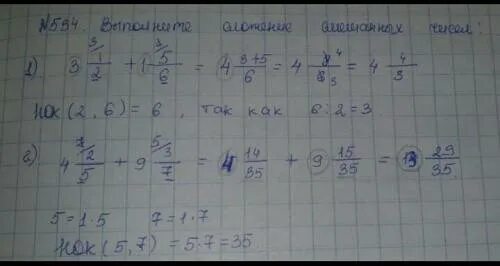 №594. Выполните сложение смешанных чисел:
1) 3 3/ 1/2 + 1 3/ 5/6 = 4 (3+5)/6 = 4 8/6 4/3 = 4 4/3
НОК (2, 6) = 6, так как 6:2=3.
2) 4 7/ 2/5 + 9 5/ 3/7 = 4 14/35 + 9 15/35 = 13 29/35
5=1·5 7=1·7
НОК (5,7) = 5·7=35